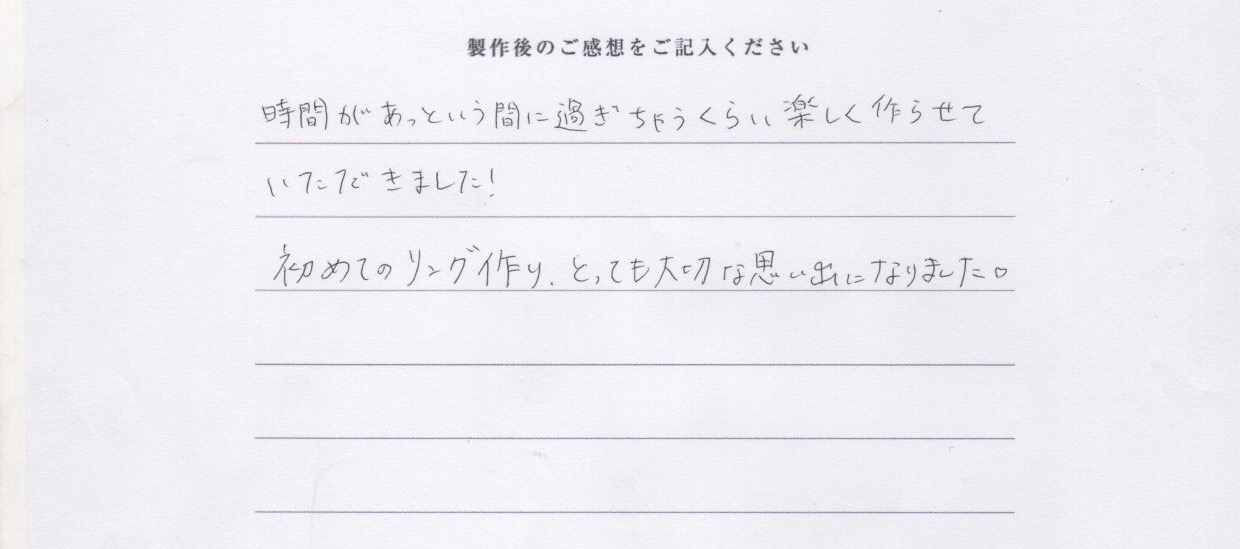 製作後のご感想をご記入ください
時間があっという間に過ぎちゃうくらい楽しく作らせて
いただきました!
初めてのリング作り、とっても大切な思い出になりました。